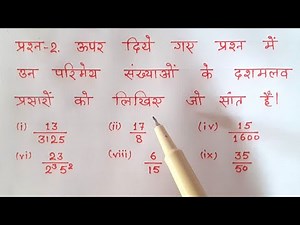 प्रश्न-2. ऊपर दिये गए प्रश्न में
उन परिमेय संख्याओं के दशमलव
प्रसारों को लिखिए जो सांत हैं।
(i) 13/3125 (ii) 17/8 (iv) 15/1600
(vi) 23/2³5² (viii) 6/15 (ix) 35/50